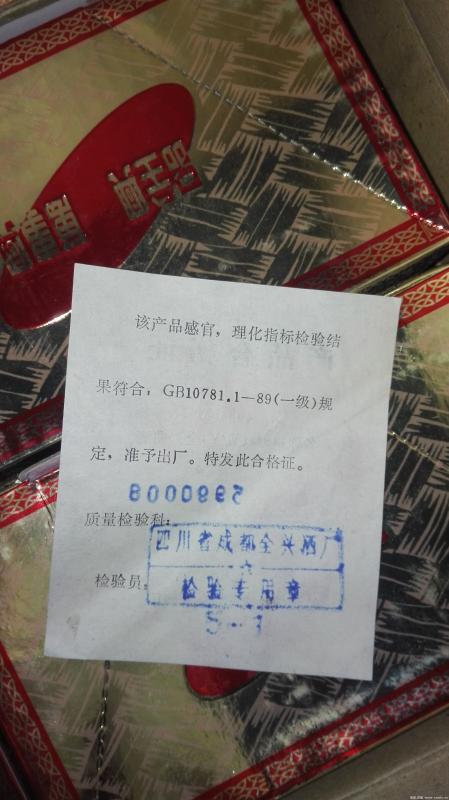 该产品感官，理化指标检验结
果符合，GB10781.1—89(一级)规
定，准予出厂。特发此合格证。
质量检验科：
四川省成都全兴酒厂
检验员
检验专用章
S-1